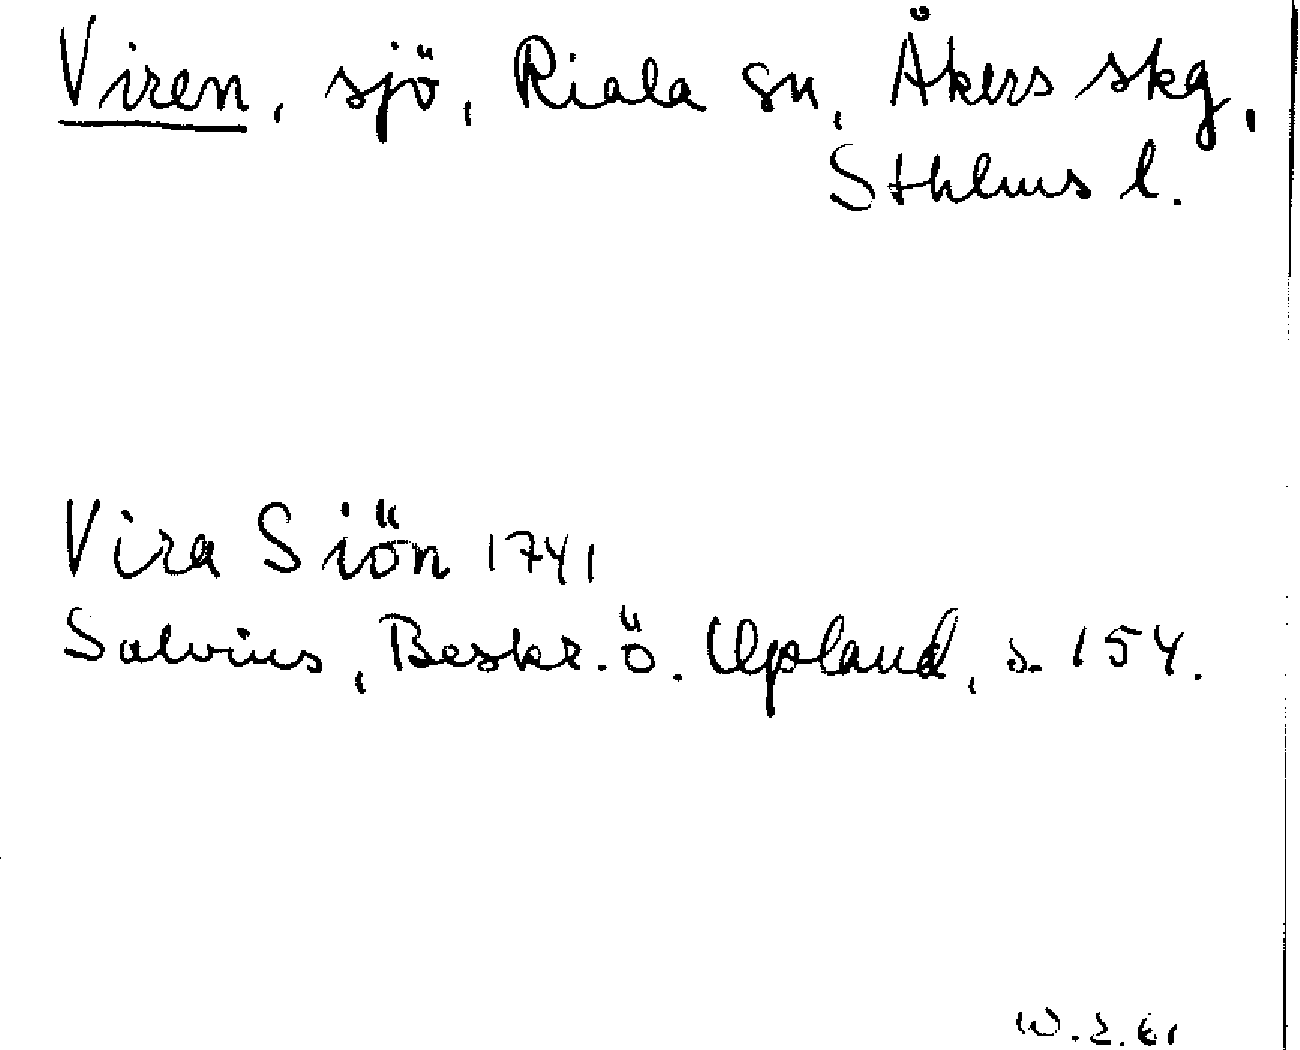 Viren, sjö, Riala sn, Åkers skg,
Sthlms l.
Vira Siön 1741
Salvius, Beskr. ö. Upland, s. 154.